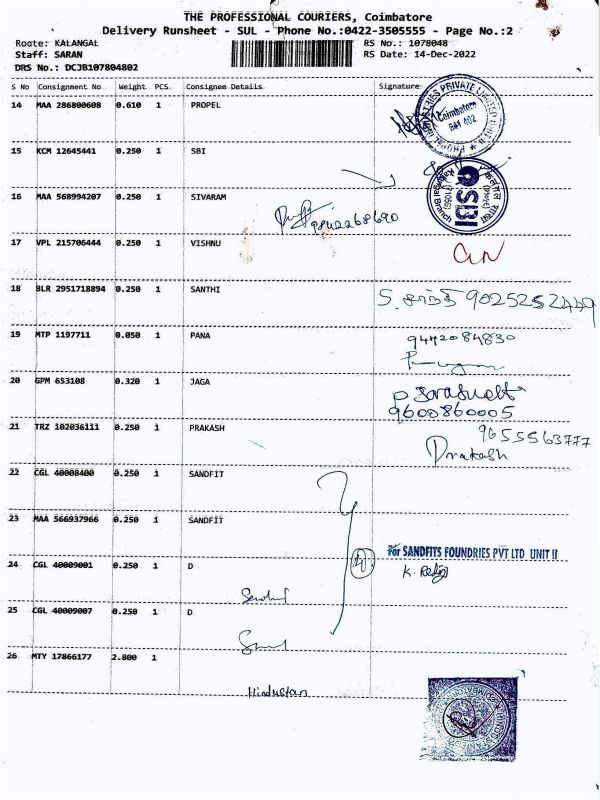 THE PROFESSIONAL COURIERS, Coimbatore
Delivery Runsheet - SUL - Phone No.:0422-3505555 - Page No.:2
Route: KALANGAL
RS No.: 1078048
Staff: SARAN
RS Date: 14-Dec-2022
DRS No.: DCJB107804802
S No Consignment No Weight PCS. Consignee Details Signature
14 MAA 286800608 0.610 1 PROPEL
Coimbatore
641 402
15 KCM 12645441 0.250 1 SBI
SBI
Kalangal Branch
16 MAA 568994207 0.250 1 SIVARAM
9842268690
17 VPL 215706444 0.250 1 VISHNU
18 BLR 2951718894 0.250 1 SANTHI
S. சாந்தி 9025252449
19 MTP 1197711 0.050 1 PANA
9442084830
20 GPM 653108 0.320 1 JAGA
9600860005
21 TRZ 102036111 0.250 1 PRAKASH
9655563777
Prakash
22 CGL 40008400 0.250 1 SANDFIT
23 MAA 566937966 0.250 1 SANDFIT
For SANDFITS FOUNDRIES PVT LTD UNIT II
24 CGL 40009001 0.250 1 D
4
25 CGL 40009007 0.250 1 D
26 MTY 17866177 2.800 1
Hindustan